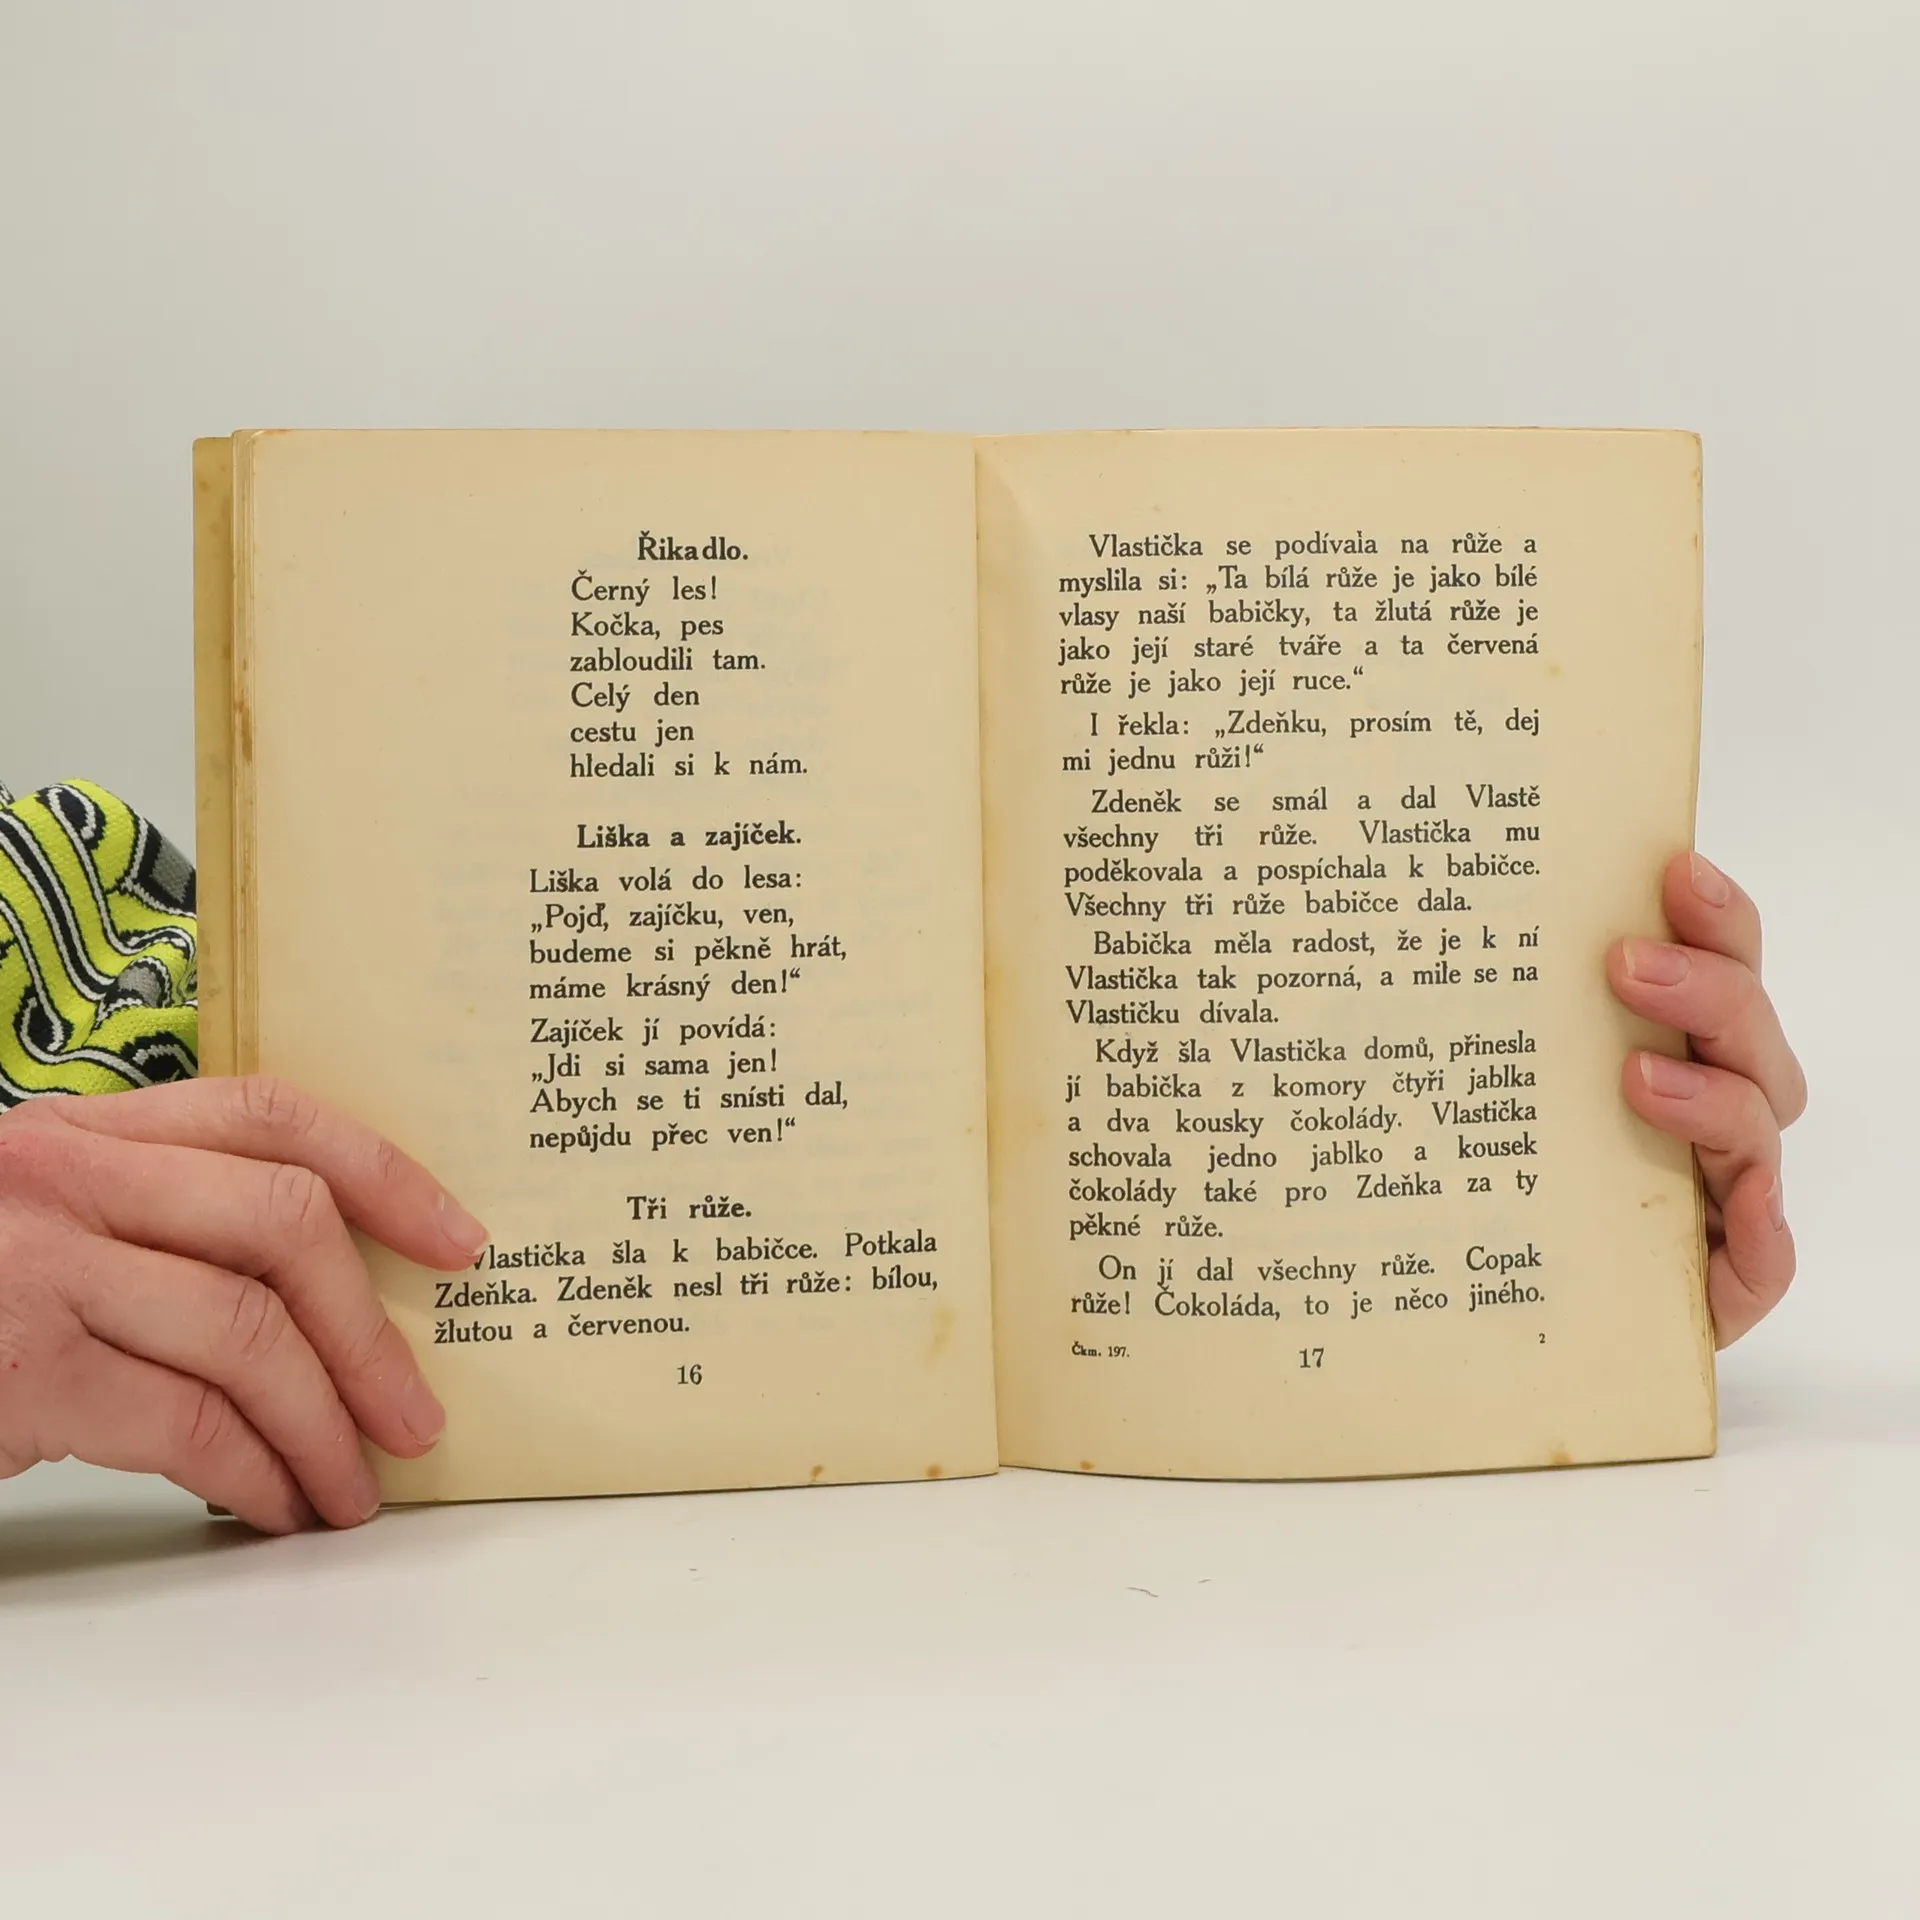 Řikadlo.
Černý les!
Kočka, pes
zabloudili tam.
Celý den
cestu jen
hledali si k nám.
Liška a zajíček.
Liška volá do lesa:
„Pojď, zajíčku, ven,
budeme si pěkně hrát,
máme krásný den!“
Zajíček jí povídá:
„Jdi si sama jen!
Abych se ti snísti dal,
nepůjdu přec ven!“
Tři růže.
Vlastička šla k babičce. Potkala
Zdeňka. Zdeněk nesl tři růže: bílou,
žlutou a červenou.
16
Vlastička se podívala na růže a
myslila si: „Ta bílá růže je jako bílé
vlasy naší babičky, ta žlutá růže je
jako její staré tváře a ta červená
růže je jako její ruce.“
I řekla: „Zdeňku, prosím tě, dej
mi jednu růži!“
Zdeněk se smál a dal Vlastě
všechny tři růže. Vlastička mu
poděkovala a pospíchala k babičce.
Všechny tři růže babičce dala.
Babička měla radost, že je k ní
Vlastička tak pozorná, a mile se na
Vlastičku dívala.
Když šla Vlastička domů, přinesla
jí babička z komory čtyři jablka
a dva kousky čokolády. Vlastička
schovala jedno jablko a kousek
čokolády také pro Zdeňka za ty
pěkné růže.
On jí dal všechny růže. Copak
růže! Čokoláda, to je něco jiného.
Čkm. 197.
17
2